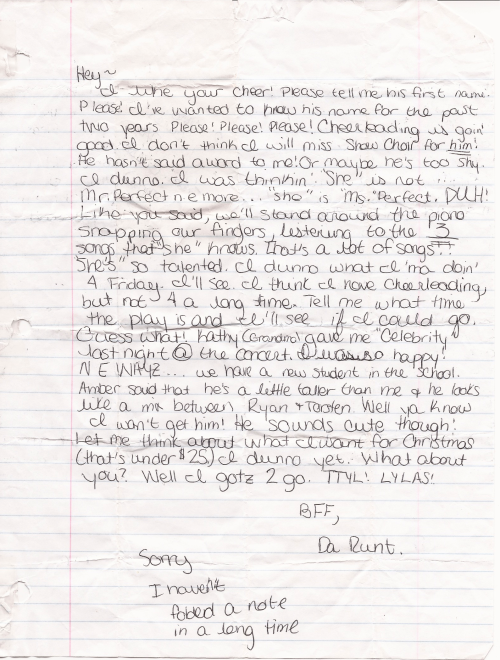 Hey~
I like your cheer! Please tell me his first name.
Please! I've wanted to know his name for the past
two years Please! Please! Please! Cheerleading is goin'
good I don't think I will miss Show Choir for him!
He hasn't said aword to me! Or maybe he's too shy.
I dunno. I was thinkin'. "She" is not
Mr. Perfect n e more... "she" is "Ms." Perfect. DUH!
Like you said, we'll stand around the piano
snapping our fingers, listening to the 3
songs that "she" knows. That's a lot of songs!!
"She's" so talented. I dunno what I'ma doin'
4 Friday. I'll see. I think I have Cheerleading,
but not 4 a long time. Tell me what time
the play is and I'll see if I could go.
Guess what! Kathy gave me "Celebrity"
last night @ the concert. I was so happy!
N E WAYZ.... we have a new student in the school.
Amber said that he's a little taller than me & he looks
like a mix between Ryan & Torsten. Well ya know
I won't get him! He sounds cute though!
Let me think about what I want for Christmas
(that's under $25.) I dunno yet. What about
you? Well I gotz 2 go. TTYL! LYLAS!
BFF,
Da Runt.
Sorry
I haven't
folded a note
in a long time